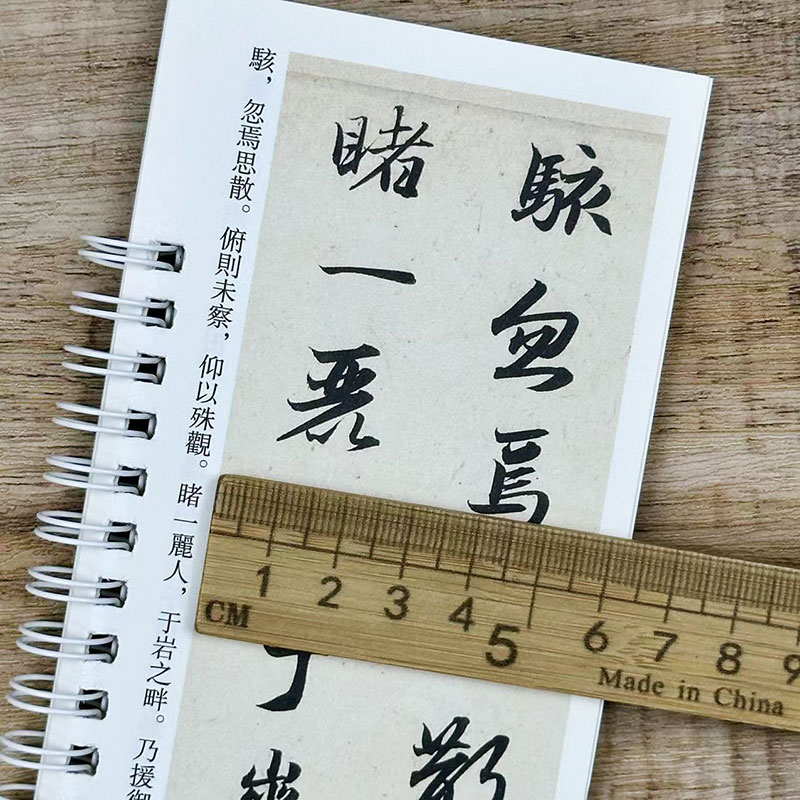 駭，忽焉思散。俯則未察，仰以殊觀。睹一麗人，于岩之畔。乃援御
駭忽焉
散
睹一麗
于
1 2 3 4 5 6 7 8 9
CM
Made in China